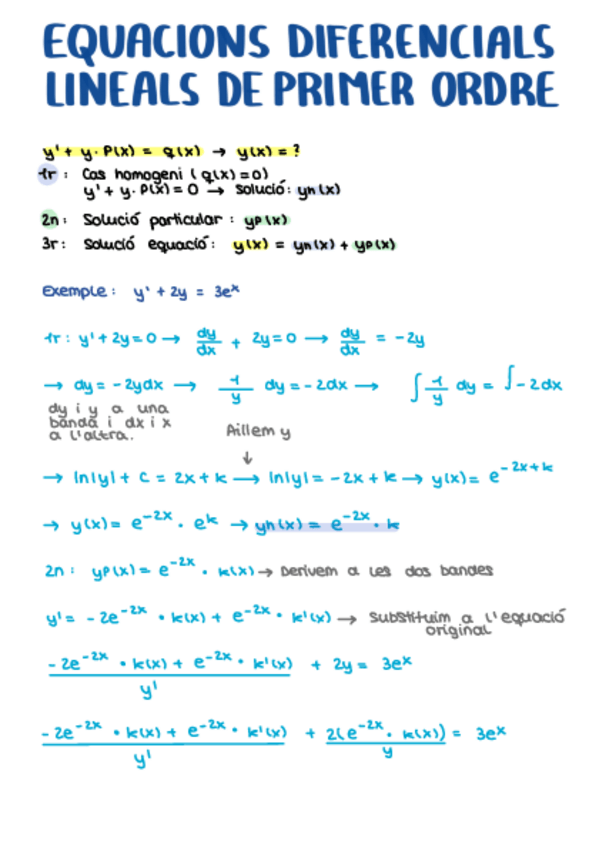 EQUACIONS DIFERENCIALS
LINEALS DE PRIMER ORDRE
y' + y · P(x) = q(x) → y(x) = ?
1r : Cas homogeni ( q(x) = 0)
y' + y · P(x) = 0 → solució: yh(x)
2n : Solució particular : yp(x)
3r : Solució equació: y(x) = yh(x) + yp(x)
Exemple : y' + 2y = 3e^x
1r : y' + 2y = 0 → dy/dx + 2y = 0 → dy/dx = -2y
→ dy = -2ydx → 1/y dy = -2dx → ∫ 1/y dy = ∫ -2dx
dy i y a una
banda i dx i x
a l'altra.
Aïllem y
↓
→ ln|y| + c = 2x + k → ln|y| = -2x + k → y(x) = e^-2x+k
→ y(x) = e^-2x · e^k → yh(x) = e^-2x · k
2n : yp(x) = e^-2x · k(x) → Derivem a les dos bandes
y' = -2e^-2x · k(x) + e^-2x · k'(x) → Substituïm a l'equació
original
-2e^-2x · k(x) + e^-2x · k'(x) + 2y = 3e^x
y'
-2e^-2x · k(x) + e^-2x · k'(x) + 2(e^-2x · k(x)) = 3e^x
y' y